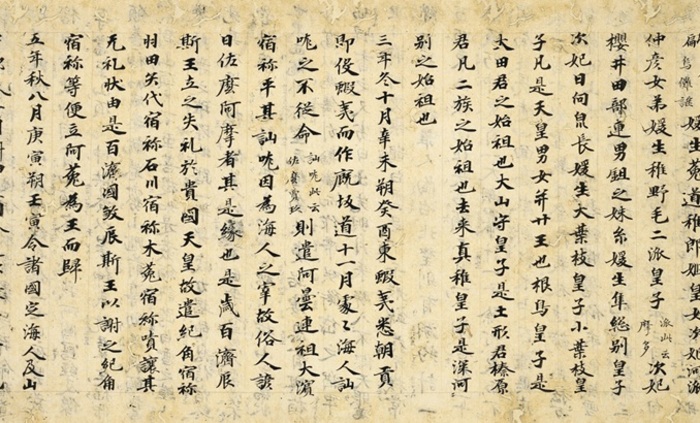 媛生菟道稚郎姫皇女次妃河派
仲彦女弟媛生稚野毛二派皇子 派此云摩多 次妃
櫻井田部連男鉏之妹糸媛生隼総別皇子
次妃日向泉長媛生大葉枝皇子小葉枝皇
子凡是天皇男女并廿王也根鳥皇子是
太田君之始祖也大山守皇子是土形君榛原
君凡二族之始祖也去来真稚皇子是深河
別之始祖也
三年冬十月辛未朔癸酉東蝦夷悉朝貢
即役蝦夷而作厩坂道十一月處々海人訕
哤之不従命 訕哤此云佐麼賣玖 則遣阿曇連祖大濱
宿祢平其訕哤因為海人之宰故俗人諺
曰佐麼阿摩者其是縁也是歳百濟辰
斯王立之失礼於貴國天皇故遣紀角宿祢
羽田矢代宿祢石川宿祢木菟宿祢嘖讓其
无礼状由是百濟國敦辰斯王以謝之紀角
宿祢等便立阿菟為王而歸
五年秋八月庚寅朔壬寅令諸國定海人及山